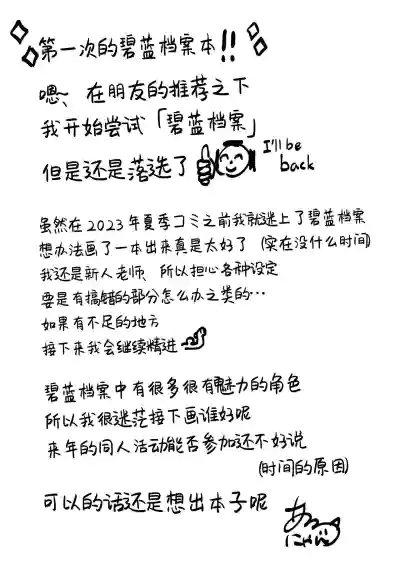 第一次的碧蓝档案本!!
嗯、在朋友的推荐之下
我开始尝试「碧蓝档案」
但是还是落选了
I'll be
back
虽然在2023年夏季コミ之前我就迷上了碧蓝档案
想办法画了一本出来真是太好了 (实在没什么时间)
我还是新人老师、所以担心各种设定
要是有搞错的部分怎么办之类的…
如果有不足的地方
接下来我会继续精进
碧蓝档案中有很多很有魅力的角色
所以我很迷茫接下画谁好呢
来年的同人活动能否参加还不好说
(时间的原因)
可以的话还是想出本子呢